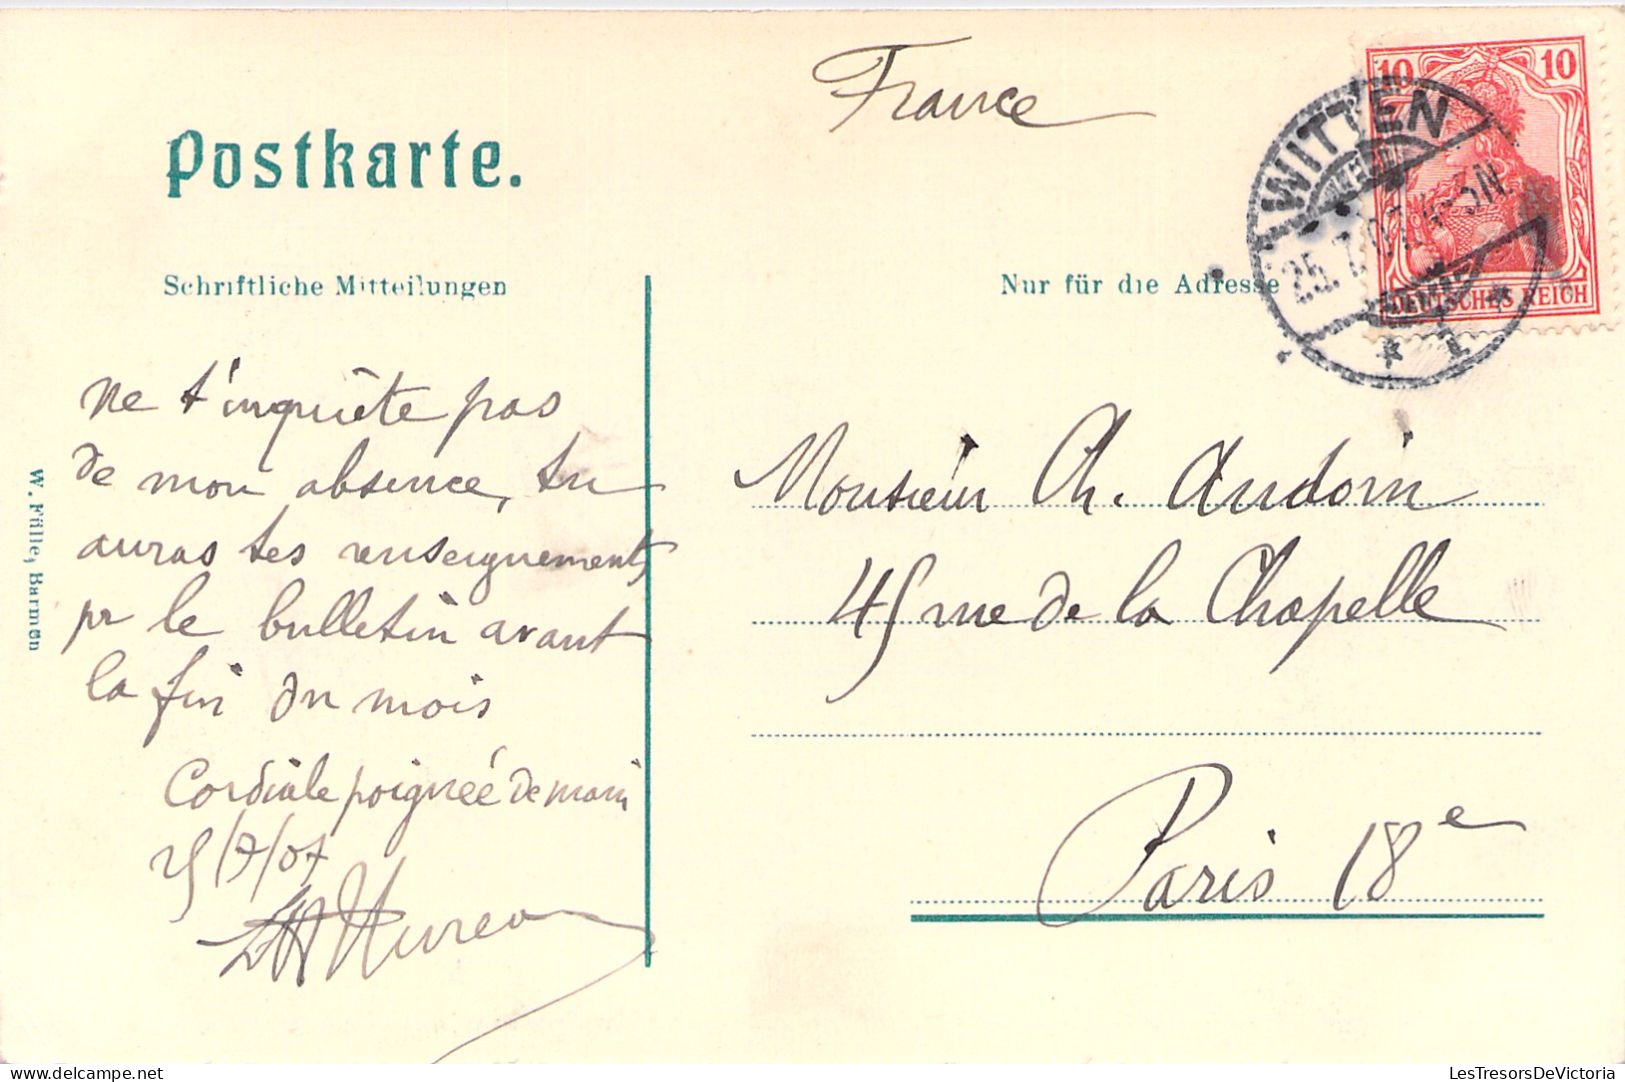 Postkarte.
France
10 10
WITTEN
25.7.07. 4-5N.
* 1 *
DEUTSCHES REICH
Schriftliche Mitteilungen
Nur für die Adresse
ne t'inquiète pas
de mon absence, tu
auras tes renseignements
pr le bulletin avant
la fin du mois
Cordiale poignée de main
25/7/07
Monsieur Ch. Audoin
45 rue de la Chapelle
Paris 18e
W. Fülle, Barmen
LesTresorsDeVictoria